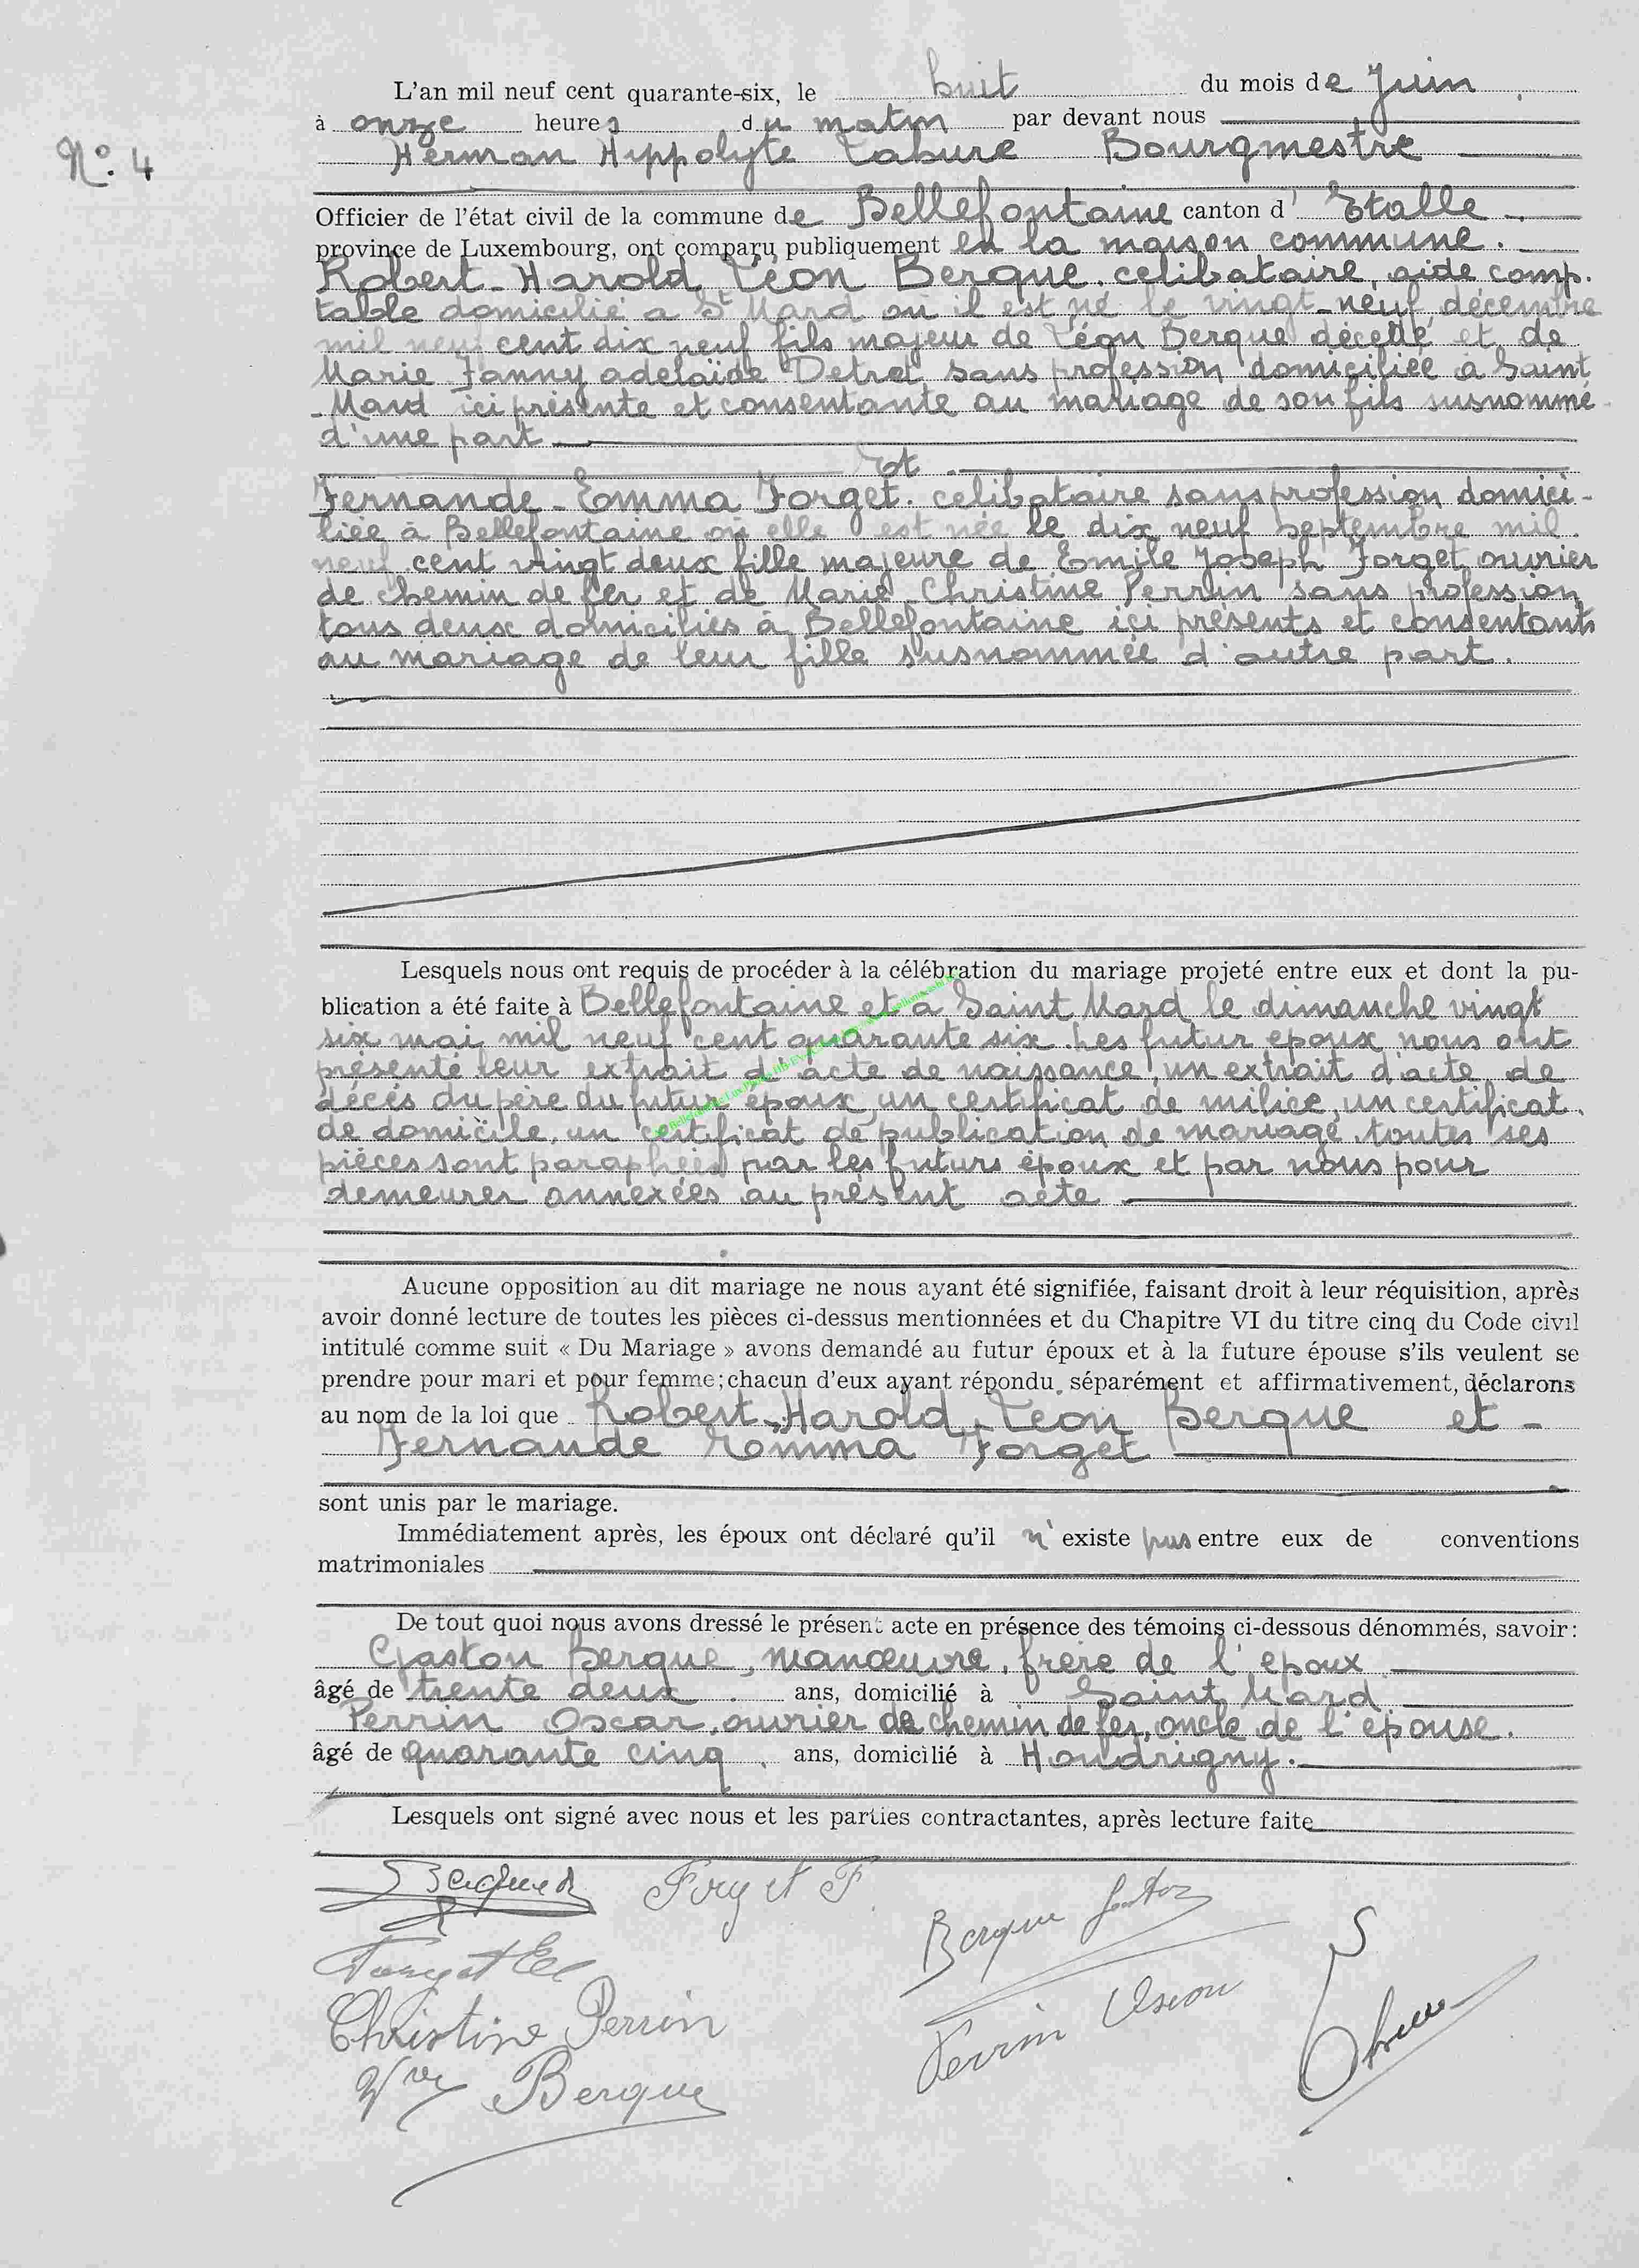 L'an mil neuf cent quarante-six, le huit du mois de Juin
à onze heures du matin par devant nous
N° 4
Herman Hippolyte Labure Bourgmestre
Officier de l'état civil de la commune de Bellefontaine canton d' Etalle
province de Luxembourg, ont comparu publiquement en la maison commune.
Robert-Harold Léon Berque. celibataire, aide comp.
table domicilié a St Mard ou il est né le vingt-neuf décembre
mil neuf cent dix neuf fils majeur de Léon Berque décédé et de
Marie Fanny adelaïde Detret sans profession domiciliée a Saint
Mard ici présente et consentante au mariage de son fils susnommé
d'une part
Et
Fernande-Emma Forget. celibataire sans profession domici-
liée à Bellefontaine ou elle est née le dix neuf septembre mil
neuf cent vingt deux fille majeure de Emile Joseph Forget ouvrier
de chemin de fer et de Marie-Christine Perrin sans profession
tous deux domiciliés à Bellefontaine ici présents et consentants
au mariage de leur fille susnommée d'autre part.
Lesquels nous ont requis de procéder à la célébration du mariage projeté entre eux et dont la pu-
blication a été faite à Bellefontaine et a Saint Mard le dimanche vingt
six mai mil neuf cent quarante six. Les futur epoux nous ont
présenté leur extrait d'acte de naissance, un extrait d'acte de
décès du père du futur époux, un certificat de milice, un certificat.
de domicile, un certificat de publication de mariage. toutes ses
pièces sont paraphées par les futurs époux et par nous pour
demeurer annexées au présent acte
Aucune opposition au dit mariage ne nous ayant été signifiée, faisant droit à leur réquisition, après
avoir donné lecture de toutes les pièces ci-dessus mentionnées et du Chapitre VI du titre cinq du Code civil
intitulé comme suit « Du Mariage » avons demandé au futur époux et à la future épouse s'ils veulent se
prendre pour mari et pour femme; chacun d'eux ayant répondu séparément et affirmativement, déclarons
au nom de la loi que Robert-Harold-Léon Berque et -
Fernande Emma Forget
sont unis par le mariage.
Immédiatement après, les époux ont déclaré qu'il n'existe pas entre eux de conventions
matrimoniales
De tout quoi nous avons dressé le présent acte en présence des témoins ci-dessous dénommés, savoir:
Gaston Berque, manœuvre, frère de l'epoux
âgé de trente deux ans, domicilié à Saint Mard
Perrin Oscar, ouvrier de chemin de fer, oncle de l'épouse.
âgé de quarante cinq ans, domicilié à Houdrigny.
Lesquels ont signé avec nous et les parties contractantes, après lecture faite
Berque R Forget F
Berque Gaston
Forget
Christine Perrin Perrin Oscar
Vve Berque